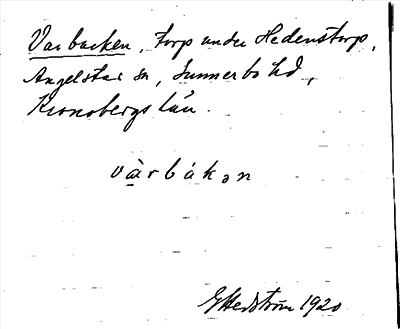 Varbacken, torp under Hedenstorp,
Angelstad sn, Sunnerbo hd,
Kronobergs län.
vàrbákən
G Hedström 1920